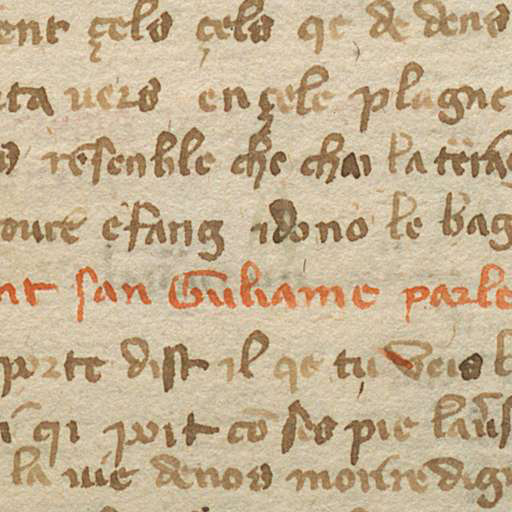 ent çels çels qe de dens
ta vers en çele plagne
s resenble che chai la tera
oure e sang i dono le bag
nt san Guliame parle
porte dist il qe tu veis
i qi poit cō ses pie laus
la uie denos morire dign